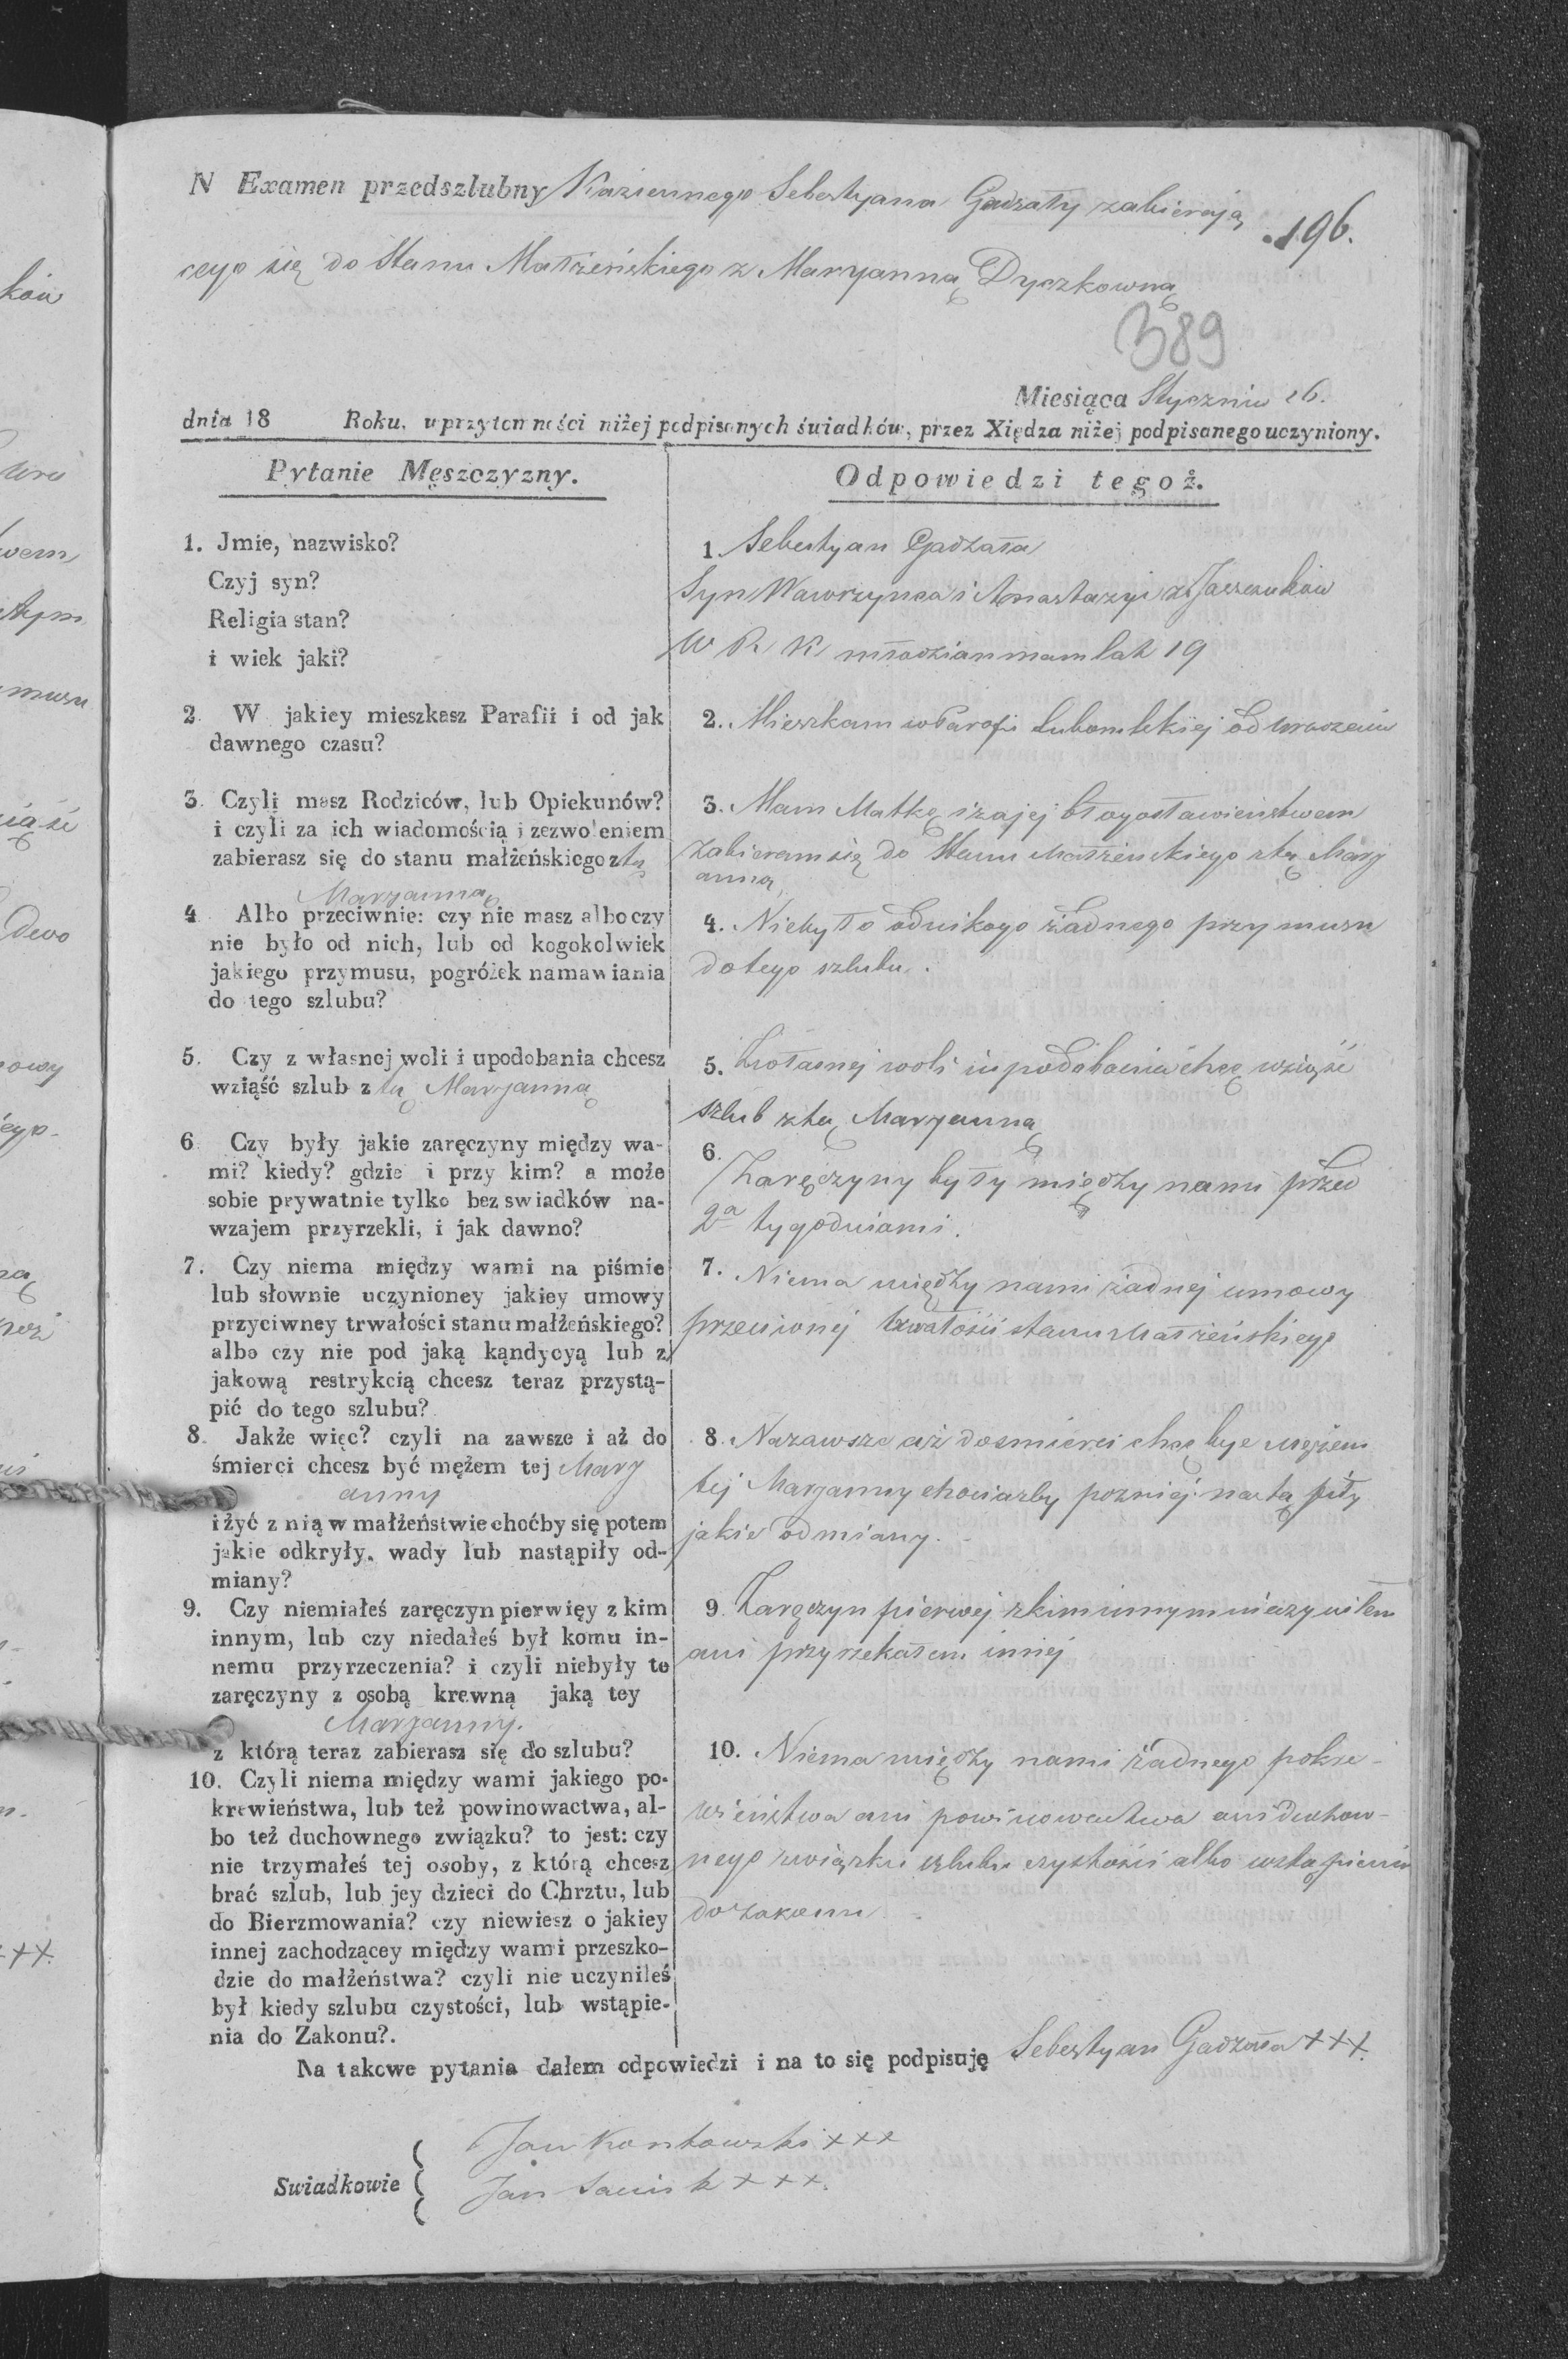 N Examen przedszlubny Kaziennego Sebestyana Gadzały zabierają
.196.
cego się do Stanu Małżeńskiego z Maryanną Dyczkowną
389
Miesiąca Stycznia 26.
dnia 18 Roku, w przytomności niżej podpisanych świadków, przez Xiędza niżej podpisanego uczyniony.
Pytanie Męszczyzny.
1. Jmie, nazwisko?
Czyj syn?
Religia stan?
i wiek jaki?
2. W jakiey mieszkasz Parafii i od jak
dawnego czasu?
3. Czyli masz Rodziców, lub Opiekunów?
i czyli za ich wiadomością i zezwoleniem
zabierasz się do stanu małżeńskiego z tą
Maryanną
4. Albo przeciwnie: czy nie masz albo czy
nie było od nich, lub od kogokolwiek
jakiego przymusu, pogróżek namawiania
do tego szlubu?
5. Czy z własnej woli i upodobania chcesz
wziąść szlub z tą Maryanną
6. Czy były jakie zaręczyny między wa-
mi? kiedy? gdzie i przy kim? a może
sobie prywatnie tylko bez swiadków na-
wzajem przyrzekli, i jak dawno?
7. Czy niema między wami na piśmie
lub słownie uczynioney jakiey umowy
przyciwney trwałości stanu małżeńskiego?
albo czy nie pod jaką kąndycyą lub z
jakową restrykcią chcesz teraz przystą-
pić do tego szlubu?
8. Jakże więc? czyli na zawsze i aż do
śmierci chcesz być mężem tej Mary
anny
i żyć z nią w małżeństwie choćby się potem
jakie odkryły, wady lub nastąpiły od-
miany?
9. Czy niemiałeś zaręczyn pierwięy z kim
innym, lub czy niedałeś był komu in-
nemu przyrzeczenia? i czyli niebyły to
zaręczyny z osobą krewną jaką tey
Maryanny.
z którą teraz zabierasz się do szlubu?
10. Czyli niema między wami jakiego po-
krewieństwa, lub też powinowactwa, al-
bo też duchownego związku? to jest: czy
nie trzymałeś tej osoby, z którą chcesz
brać szlub, lub jey dzieci do Chrztu, lub
do Bierzmowania? czy niewiesz o jakiey
innej zachodzącey między wami przeszko-
dzie do małżeństwa? czyli nie uczyniłeś
był kiedy szlubu czystości, lub wstąpie-
nia do Zakonu?.
Odpowiedzi tegoż.
1. Sebestyan Gadzała
Syn Wawrzynca i Anastazyi z Jaszczuków
W R K młodzian mam lat 19
2. Mieszkam w Parafi Lubomlskiej od urodzenia
3. Mam Matkę i za jej błogosławieństwem
zabieram się do Stanu Małżeńskiego z tą Mary
anną
4. Niebyło od nikogo żadnego przymusu
do tego szlubu.
5. Zwłasnej woli i upodobania chcę wziąść
szlub z tą Maryanną
6. Zaręczyny były między nami przed
2a tygodniami.
7. Niema między nami żadnej umowy
przeciwnej trwałości stanu Małżeńskiego
8. Nazawsze aż do smierci chcę być mężem
tej Maryanny chociażby pozniej nastąpiły
jakie odmiany.
9. Zaręczyn pierwej z kim innym nieczyniłem
ani przyrzekałem innej
10. Niema między nami żadnego pokre-
wieństwa ani powinowactwa ani duchow-
nego związku szlubu czystości albo wstąpienia
do zakonu
Na takowe pytania dałem odpowiedzi i na to się podpisuję Sebestyan Gadzała +++.
Swiadkowie
Jan +++
Jan +++.